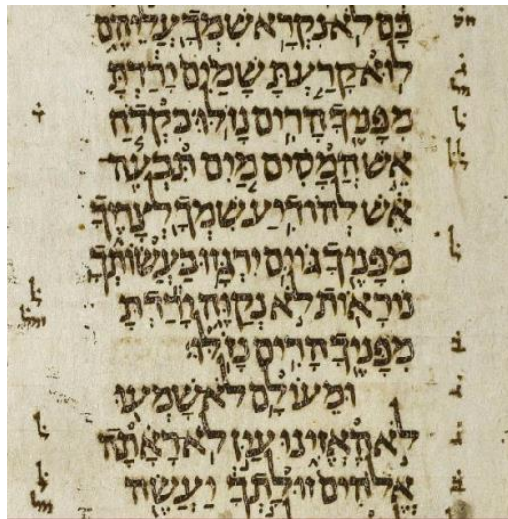 בָּם לֹא נִקְרָא שִׁמְךָ עֲלֵיהֶם
לוּא קָרַעְתָּ שָׁמַיִם יָרַדְתָּ
מִפָּנֶיךָ הָרִים נָזֹלּוּ כִּקְדֹחַ
אֵשׁ הֲמָסִים מַיִם תִּבְעֶה
אֵשׁ לְהוֹדִיעַ שִׁמְךָ לְצָרֶיךָ
מִפָּנֶיךָ גּוֹיִם יִרְגָּזוּ בַּעֲשׂוֹתְךָ
נוֹרָאוֹת לֹא נְקַוֶּה יָרַדְתָּ
מִפָּנֶיךָ הָרִים נָזֹלּוּ
וּמֵעוֹלָם לֹא שָׁמְעוּ
לֹא הֶאֱזִינוּ עַיִן לֹא רָאָתָה
אֱלֹהִים זוּלָתְךָ יַעֲשֶׂה